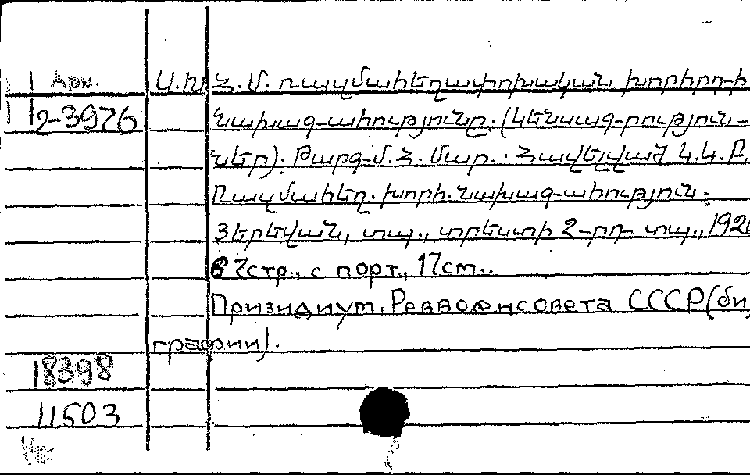 Арм. Ս.Խ.Հ.Մ. ռազմահեղափոխական խորհրդի
2-3976 նախագահությունը. (կենսագրություն-
ներ). Թարգմ. Հ. Մար.: Հավելված Կ.Կ.Բ.
Ռազմահեղ. խորհ. նախագահություն.
Յերեվան, տպ., տրեստի 2-րդ տպ.,
67стр., с порт., 17см..
Призидиум. Реввоенсовета СССР (би
графии).
18398
11503